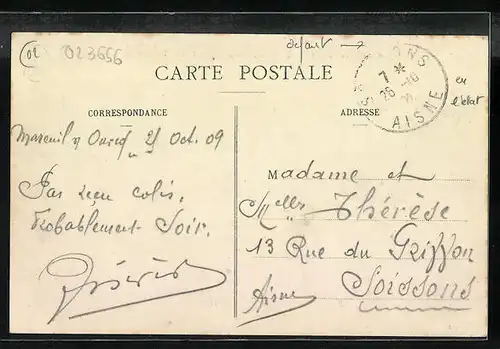 02
023656
départ →
CARTE POSTALE
SOISSONS
7 *
26 -10
AISNE
en
l'état
CORRESPONDANCE
ADRESSE
Mareuil s/ Ourcq 25 Oct. 09
Pas reçu colis.
Probablement Soir.
Madame et
Melle Thérèse
13 Rue du Griffon
Soissons
Aisne